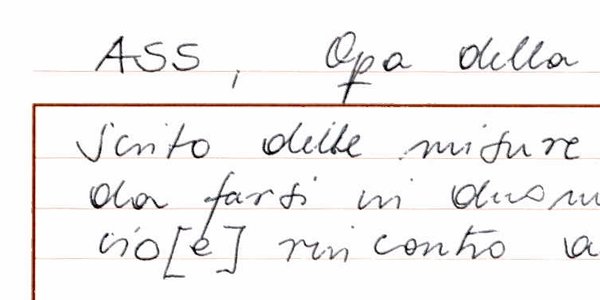 ASS, Opa della
Scrito delle misure
da farsi in duom
cio[e] rincontro a